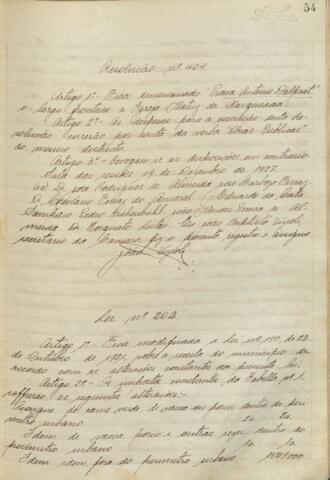 54
Resolução nº 404
Artigo 1º Fica denominado "Praça Antonio
o largo fronteiro a Egreja Matriz de Xarqueada.
Artigo 2º As despezas para a execução desta re-
solução correrão por conta da verba "Obras Publicas"
do mesmo districto.
Artigo 3º Revogam-se as disposições em contrario.
Sala das sessões 19 de Dezembro de 1927.
José Rodrigues de Almeida, José Barbosa Ferraz,
Ferraz do Amaral, Eduardo da Costa
Sampaio, Pedro João
Eu João Baptista
secretario da Camara, fiz o presente registro e assigno.
João
Lei nº 203
Artigo 1º Fica modificada a Lei nº 150, de 23
de Outubro de 1921, sobre a receita do municipio, de
accordo com as alterações constantes da presente lei.
Artigo 2º As impostos constantes da Tabella nº 1,
as seguintes alterações:
de carne verde de vacca ou porco dentro do peri-
metro urbano
Idem de vacca, porco e outras rezes, dentro do
perimetro urbano
Idem, idem, fora do perimetro urbano 150$000